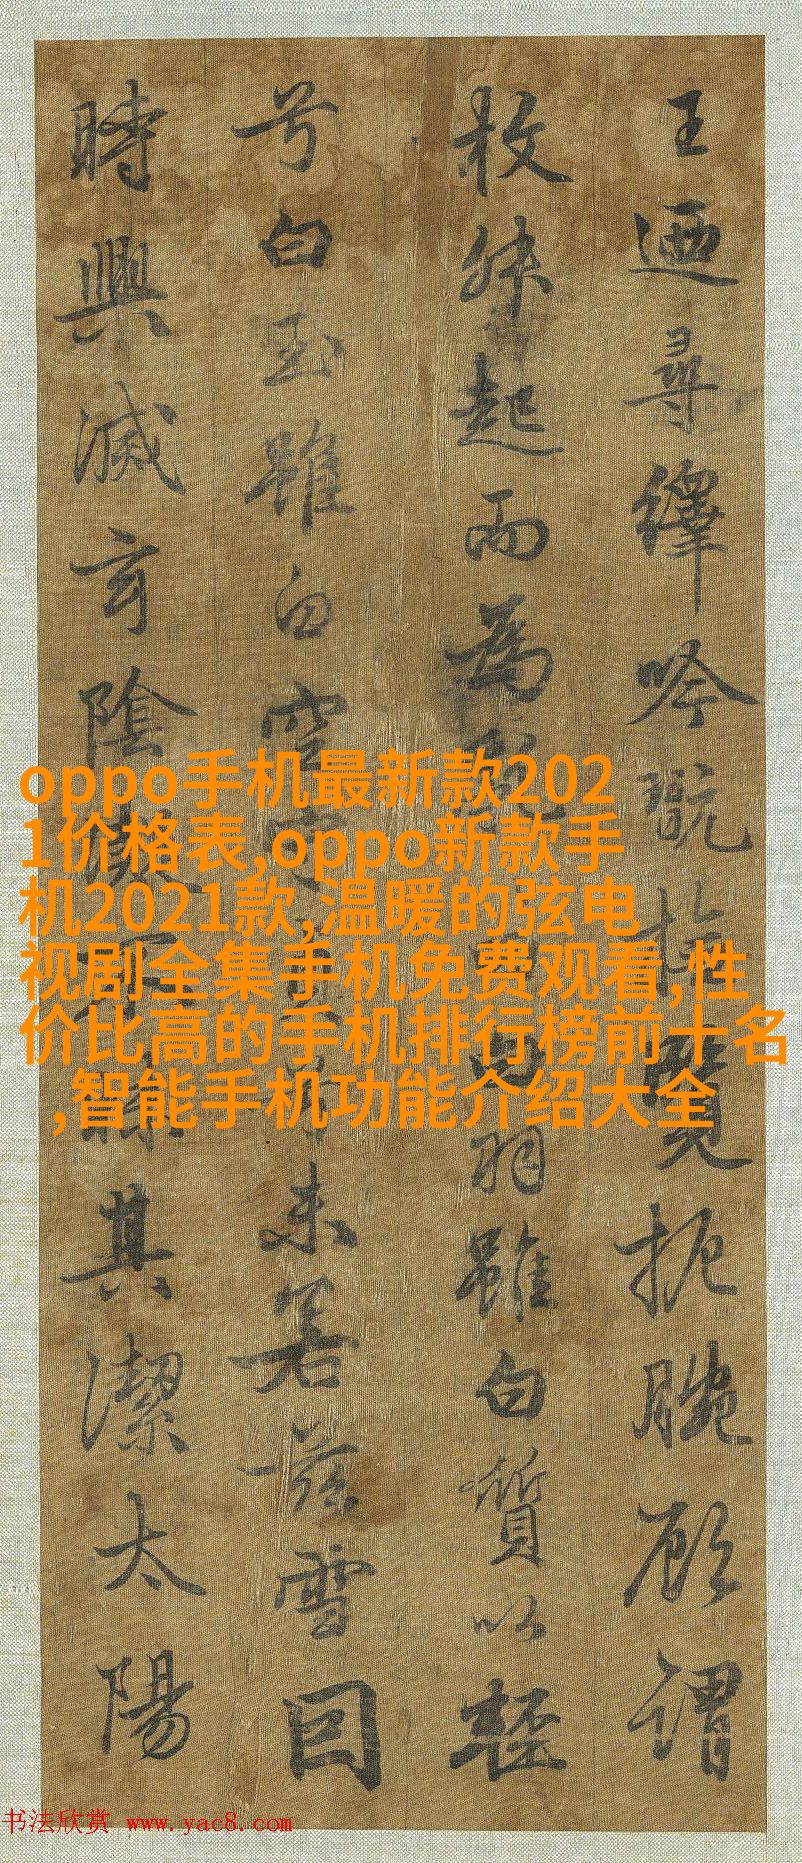 王迺尋繹吟翫撫覽扼腕顧謂
枚叔起而為亂羽雖白質以輕
兮白玉雖白空守未若茲雪因
時興滅玄陰其潔太陽
oppo手机最新款202
1价格表,oppo新款手
机2021款,温暖的弦电
视剧全集手机免费观看,性
价比高的手机排行榜前十名
,智能手机功能介绍大全
书法欣赏 www.yac8.com